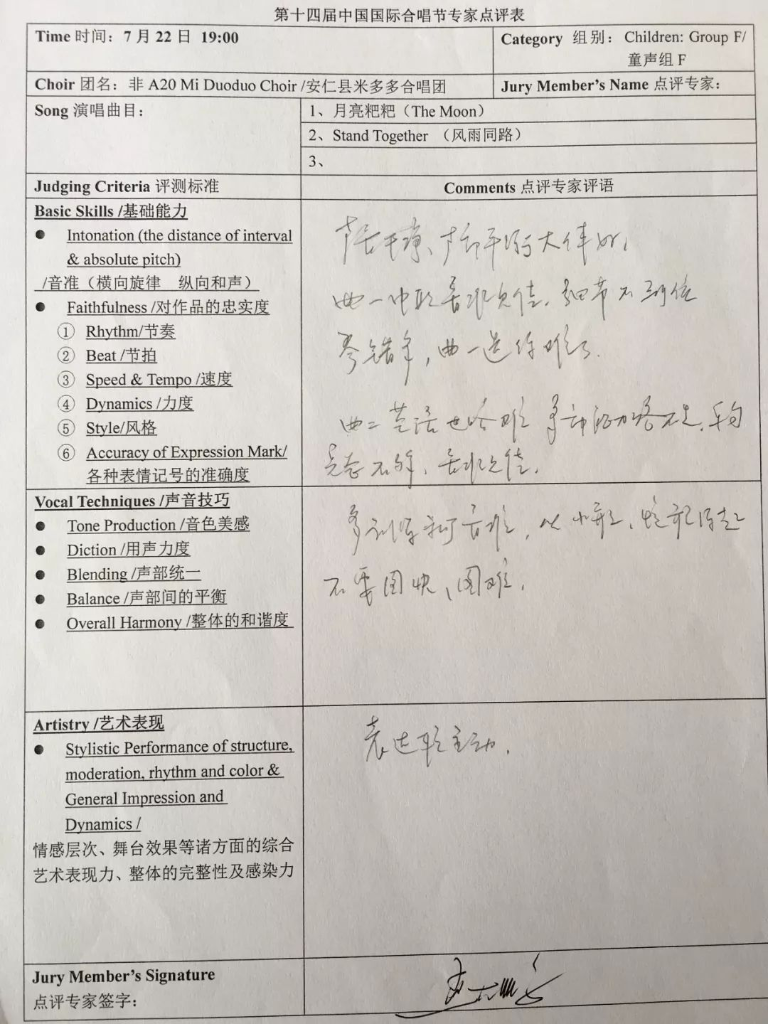 第十四届中国国际合唱节专家点评表
Time 时间：7 月 22 日 19:00
Category 组别： Children: Group F/
童声组 F
Choir 团名：非 A20 Mi Duoduo Choir /安仁县米多多合唱团
Jury Member’s Name 点评专家：
Song 演唱曲目：
1、月亮粑粑（The Moon）
2、Stand Together （风雨同路）
3、
Judging Criteria 评测标准
Comments 点评专家评语
Basic Skills /基础能力
● Intonation (the distance of interval
& absolute pitch)
/音准（横向旋律 纵向和声）
● Faithfulness /对作品的忠实度
① Rhythm/节奏
② Beat /节拍
③ Speed & Tempo /速度
④ Dynamics /力度
⑤ Style/风格
⑥ Accuracy of Expression Mark/
各种表情记号的准确度
声音干净、声部平衡大体好，
曲一中段音准欠佳，细节不到位
曲二英语也略难
不够，音准欠佳。
Vocal Techniques /声音技巧
● Tone Production /音色美感
● Diction /用声力度
● Blending /声部统一
● Balance /声部间的平衡
● Overall Harmony /整体的和谐度
多训练
不要图快、图难。
Artistry /艺术表现
● Stylistic Performance of structure,
moderation, rhythm and color &
General Impression and
Dynamics /
情感层次、舞台效果等诸方面的综合
艺术表现力、整体的完整性及感染力
表达较主动。
Jury Member’s Signature
点评专家签字：